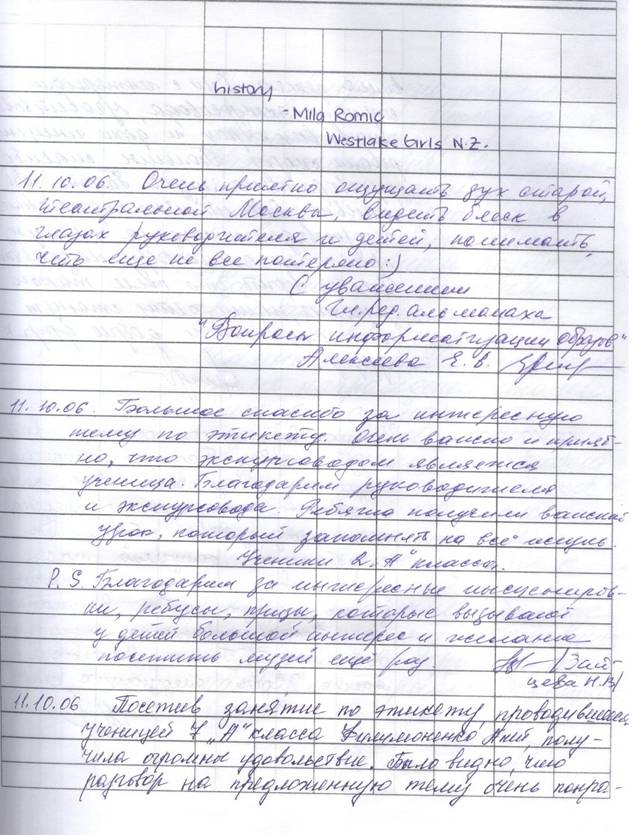 history
- Mila Romic
Westlake Girls N.Z.
11.10.06. Очень приятно ощущать дух старой,
театральной Москвы, видеть блеск в
глазах руководителя и детей, понимать,
что еще не все потеряно :)
С уважением
Гл. ред. альманаха
"Вопросы информатизации образов"
Алексеева Е. В.
11.10.06. Большое спасибо за интересную
тему по этикету. Очень важно и прият-
но, что экскурсоводом является
ученица. Благодарим руководителя
и экскурсовода. Ребята получили важный
урок, который запомнят на всё жизнь.
Ученики 2 „А" класса.
P. S. Благодарим за интересные инсцениров-
ки, ребусы, призы, которые вызывают
у детей большой интерес и желание
посетить музей еще раз /Зай-
цева Н.В/
11.10.06 Посетив занятие по этикету, проводившееся
ученицей 7 „А" класса Аней, полу-
чила огромное удовольствие. Было видно, что
разговор на предложенную тему очень понра-